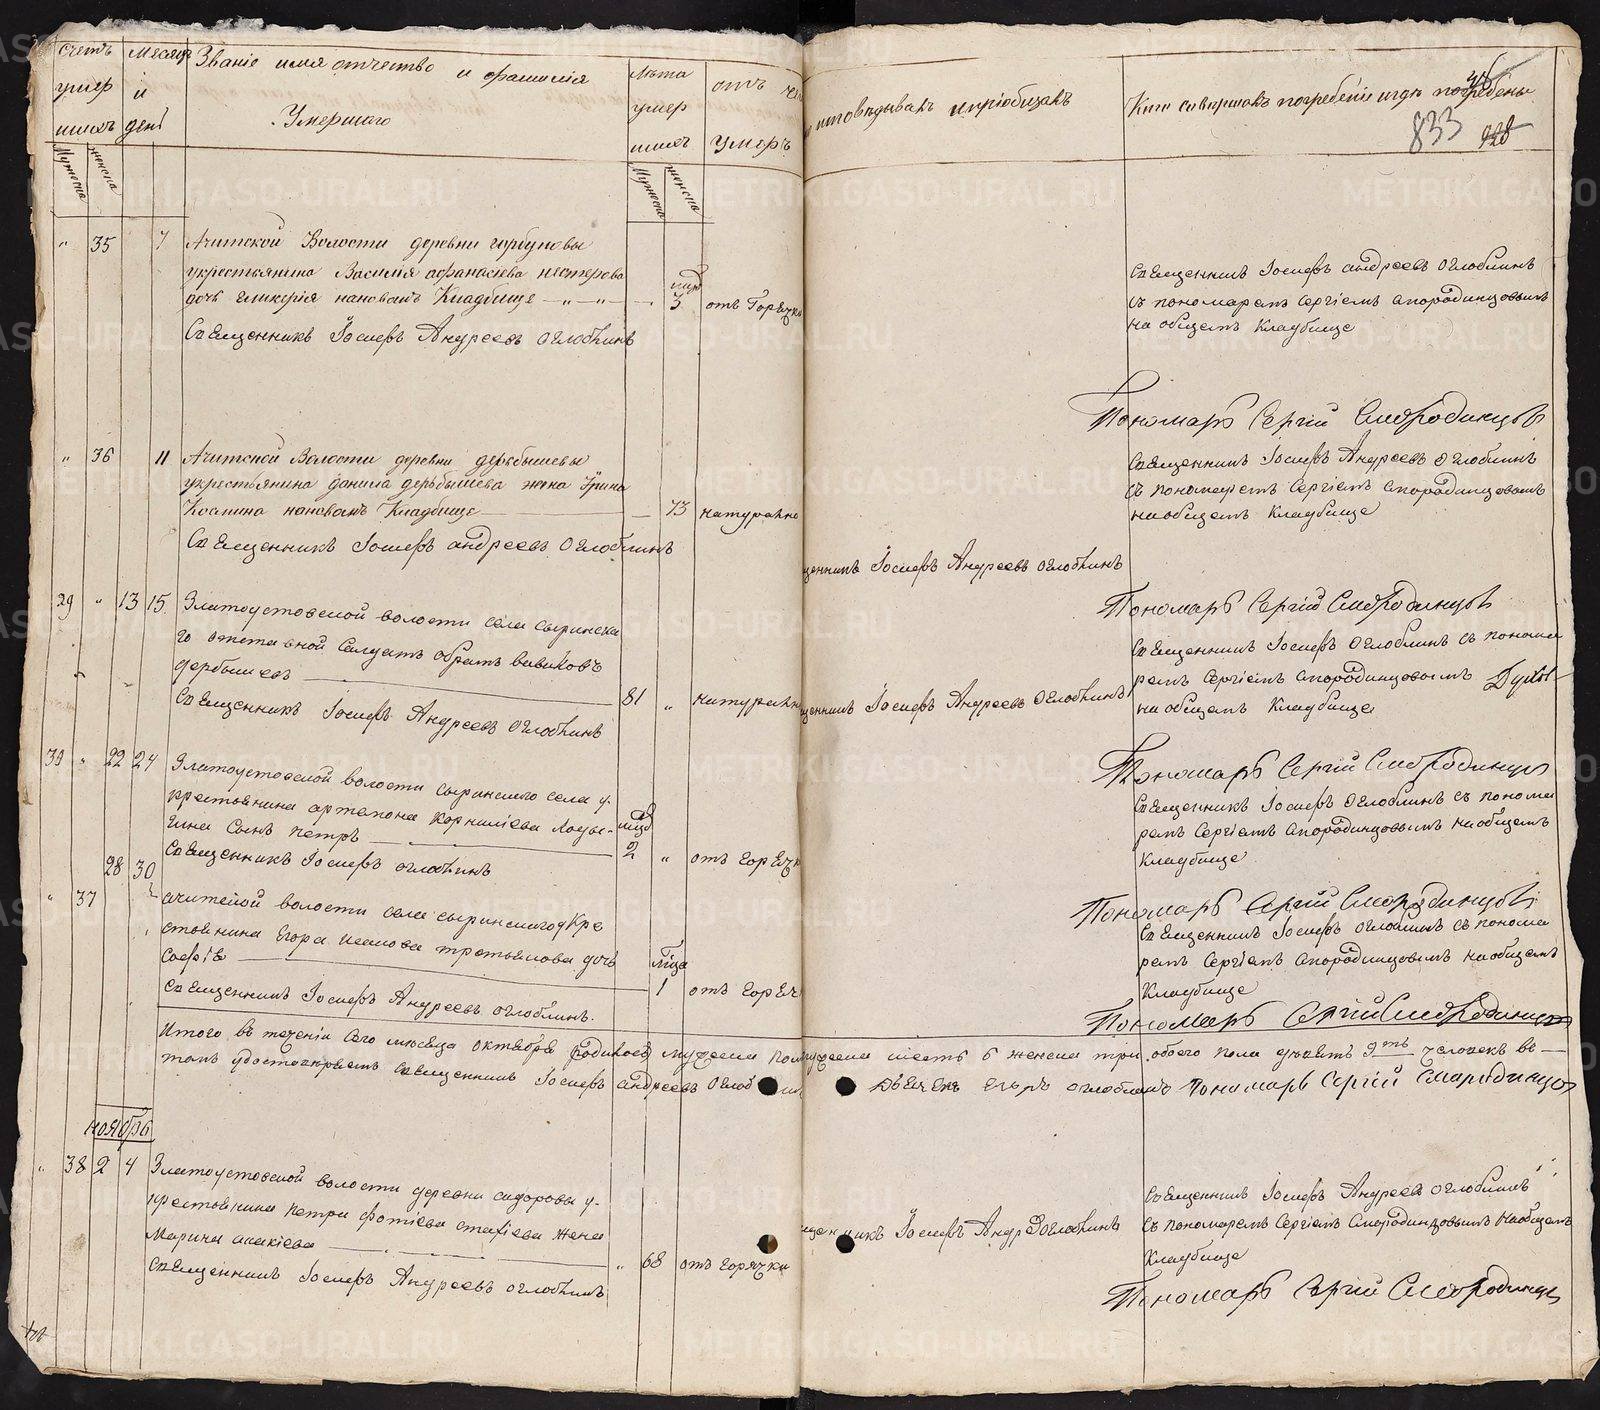 счетъ умер шихъ
Мужеска
женска
месяцъ и день
Званіе имя отчество и фамилія
Умершаго
Лѣта умер шихъ
Мужеска
женска
отъ че
Умеръ
исповѣдывалъ ипріобщалъ
Кто совершалъ погребеніе игдѣ погребены
833
928
" 35 7 Ачитской Волости деревни горбуновы
укрестьянина Василия афанасьева нестерова
дочь гликерія нановомъ Кладбище — „ — „ — 3 отъ Горячк
Священникъ Іосифъ Андреевъ Оглоблинъ
Священникъ Іосифъ андреевъ Оглоблинъ
съ пономаремъ Сергіемъ смородинцовымъ
на общемъ Кладбище
Пономарь Сергій Смородинцовъ
" 36 11 Ачитской Волости деревни дербышевы
укрестьянина данила дербышева жена Ірина
Козмина нановомъ Кладбище — 73 натурально
Священникъ Іосифъ андреевъ Оглоблинъ
щенникъ Іосифъ Андреевъ Оглоблинъ
Священникъ Іосифъ Андреевъ Оглоблинъ
съ пономаремъ Сергіемъ смородинцовымъ
наобщемъ Кладбище
Пономарь Сергій Смородинцовъ
29 " 13 15 Златоустовской волости села сыринска
го отставной Салдатъ
дербышевъ — 81 „ натурально
Священникъ Іосифъ Андреевъ Оглоблинъ
щенникъ Іосифъ Андреевъ Оглоблинъ
Священникъ Іосифъ Оглоблинъ съ понома
ремъ Сергіемъ смородинцовымъ
на общемъ Кладбище
Пономарь Сергій Смородинцовъ
30 " 22 24 Златоустовской волости сыринскаго села у
крестьянина артамона Корниліева
Сынъ петръ — 2 „ отъ горячк
Священникъ Іосифъ оглоблинъ
Священникъ Іосифъ Оглоблинъ съ понома
ремъ Сергіемъ Смородинцовымъ наобщемъ
Кладбище
Пономарь Сергій Смородинцовъ
28 30
" 37 ачитской волости села сыринскагоукре
стьянина Егора третьякова дочь
Софія — 1 отъ горяч
Священникъ Іосифъ Андреевъ оглоблинъ.
Священникъ Іосифъ оглоблинъ съ понома
ремъ Сергіемъ Смородинцовымъ наобщемъ
Кладбище
Пономарь Сергій Смородинцовъ
Итого въ теченіи сего месяца октября мужеска шесть 6 женска три обоего пола девять 9ть человекъ въ —
томъ удостоверяемъ Священникъ Іосифъ андреевъ Оглоб дьячекъ егоръ оглоблинъ Пономарь Сергій Смородинцовъ
ноябрь
" 38 2 4 Златоустовской волости деревни сидоровы у
крестьянина петра фотіева жена
Марина — „ 68 отъ горячки
Священникъ Іосифъ Андреевъ оглоблинъ
щенникъ Іосифъ Андр Оглоблинъ
Священникъ Іосифъ Андреевъ Оглоблинъ
съ пономаремъ Сергіемъ Смородинцовымъ наобщемъ
Кладбище
Пономарь Сергій Смородинцовъ
METRIKI.GASO-URAL.RU